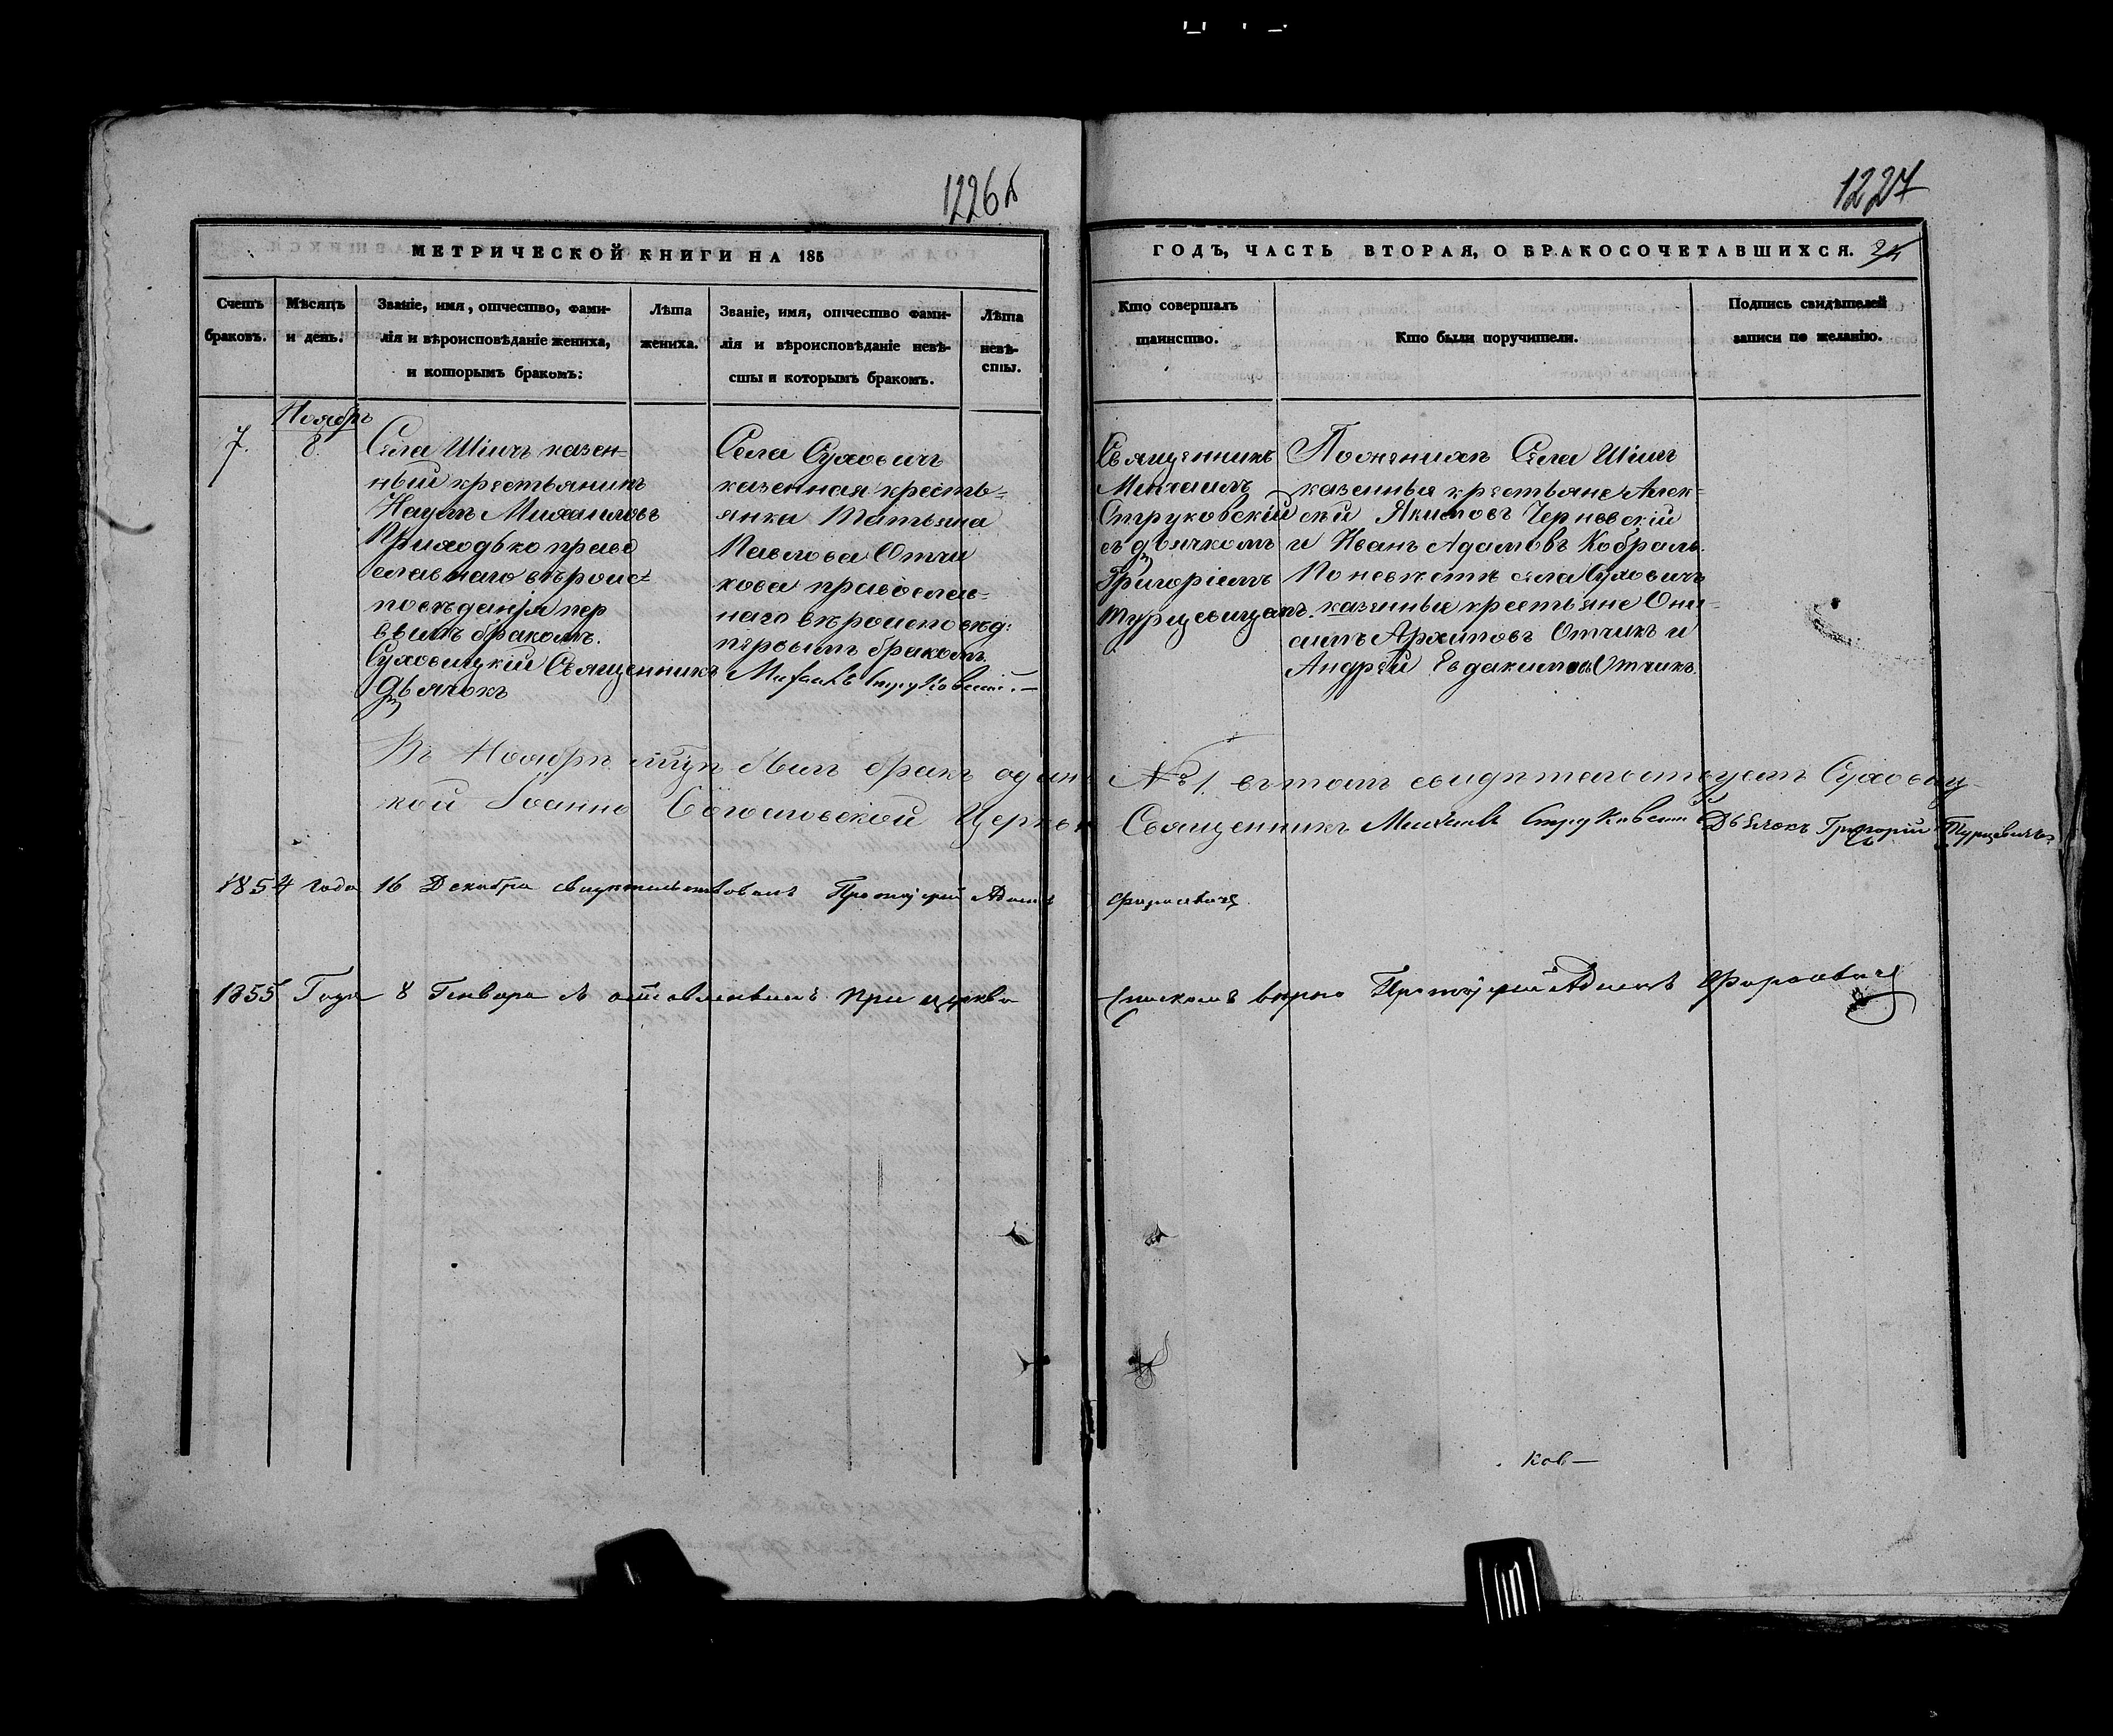 1226
1227
МЕТРИЧЕСКОЙ КНИГИ НА 185
ГОДЪ, ЧАСТЬ ВТОРАЯ, О БРАКОСОЧЕТАВШИХСЯ.
Счетъ браковъ.
Мѣсяцъ и день.
Званіе, имя, отчество, фами-
лія и вѣроисповѣданіе жениха,
и которымъ бракомъ:
Лѣта
жениха.
Званіе, имя, отчество фами-
лія и вѣроисповѣданіе невѣ-
сты и которымъ бракомъ.
Лѣта
невѣ-
сты.
Кто совершалъ
таинство.
Кто были поручители.
Подпись свидѣтелей
записи по желанію.
7.
Ноябръ
8.
Села Шіичъ казен=
ный крестьянинъ
Наумъ Михаиловъ
Приходько право
славнаго вѣроис=
повѣданія пер
ввымъ бракомъ.
Суховицкій Священникъ Михаилъ Струковскій.—
Дьячокъ
Села Суховичъ
казенная кресть=
янка Татьяна
Павлова Отчи
кова православ=
наго вѣроисповѣд:
первымъ бракомъ
Священникъ
Михаилъ
Струковскій
съ дьячкомъ
Григоріемъ
Турцевичемъ.
По женихѣ Села Шіичъ
казенныя крестьяне Алек=
сѣй Якимовъ Черневскій
и Иванъ Адамовъ Кобраль.
По невѣстѣ села Суховичъ
казенные крестьяне Они-
симъ Архиповъ Отчикъ и
Андрей Евдакимовъ Отчикъ.
Въ Ноябрѣ мцѣ былъ бракъ одинъ № 1. въ томъ свидѣтельствуетъ Суховиц-
кой Іоанно Богословской Церкви Священникъ Михаилъ Струковскій Дьячокъ Григорій Турцевичъ
1854 года 16 Декабра свидѣтельствовалъ Протоіерей Адамъ
1855 Года 8 Генвара съ оставленнымъ при церкви спискомъ вѣрно Протоіерей Адамъ
ков—